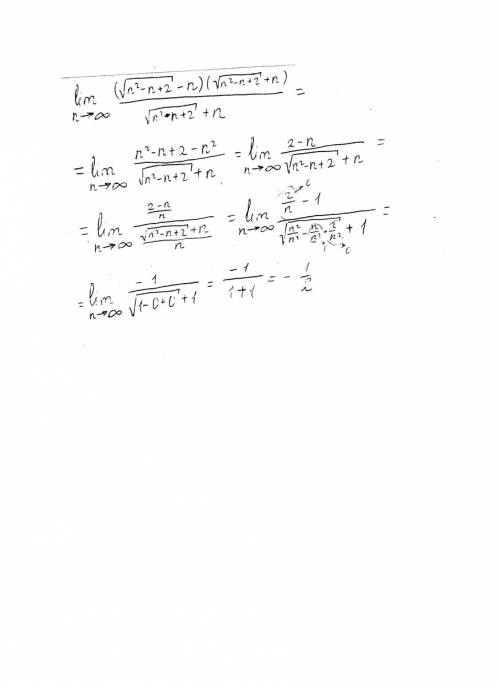 lim n→∞ (√(n²-n+2) - n)(√(n²-n+2) + n) / (√(n²-n+2) + n) =
= lim n→∞ (n²-n+2-n²) / (√(n²-n+2) + n) = lim n→∞ (2-n) / (√(n²-n+2) + n) =
= lim n→∞ ((2-n)/n) / ((√(n²-n+2) + n)/n) = lim n→∞ (2/n →0 - 1) / (√(n²/n² - n/n² + 2/n²) + 1) =
= lim n→∞ -1 / (√(1-0+0) + 1) = -1 / (1+1) = - 1/2